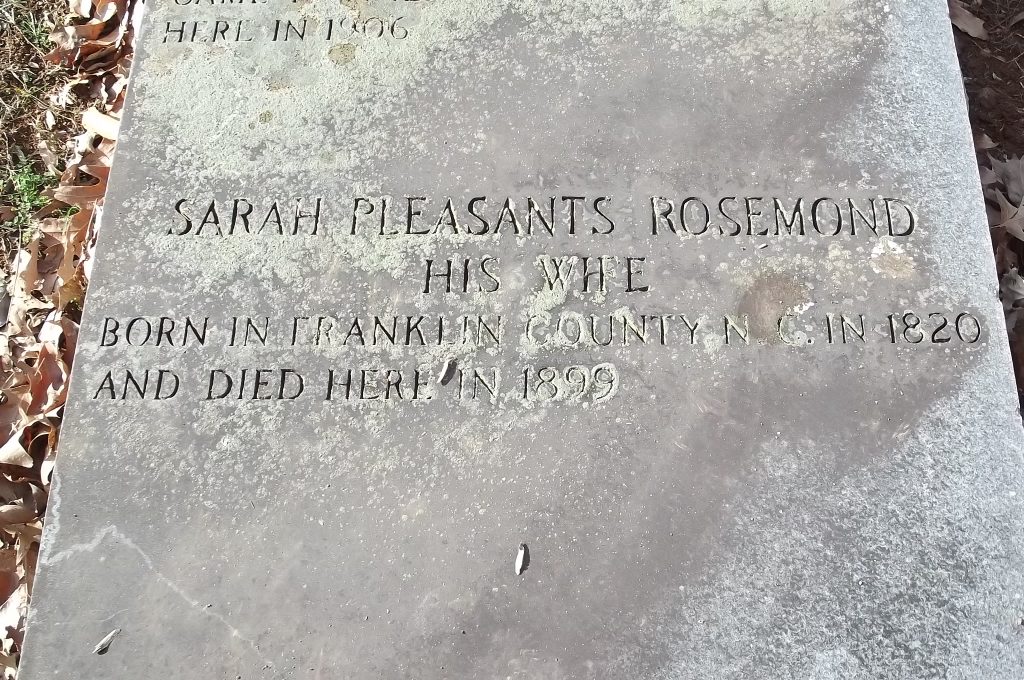 HERE IN 1906
SARAH PLEASANTS ROSEMOND
HIS WIFE
BORN IN FRANKLIN COUNTY N. C. IN 1820
AND DIED HERE IN 1899